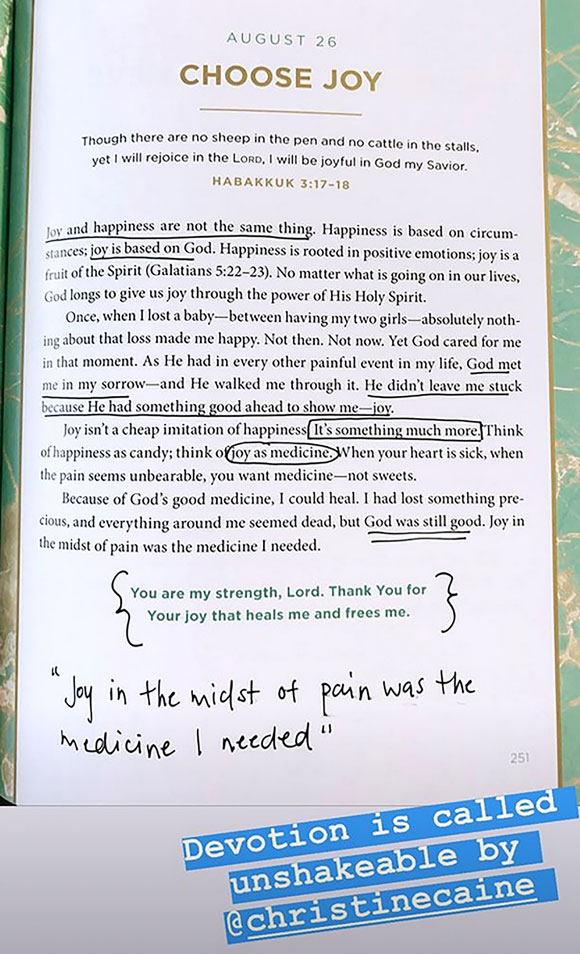 AUGUST 26
CHOOSE JOY
Though there are no sheep in the pen and no cattle in the stalls,
yet I will rejoice in the LORD, I will be joyful in God my Savior.
HABAKKUK 3:17–18
Joy and happiness are not the same thing. Happiness is based on circum-
stances; joy is based on God. Happiness is rooted in positive emotions; joy is a
fruit of the Spirit (Galatians 5:22–23). No matter what is going on in our lives,
God longs to give us joy through the power of His Holy Spirit.
Once, when I lost a baby—between having my two girls—absolutely noth-
ing about that loss made me happy. Not then. Not now. Yet God cared for me
in that moment. As He had in every other painful event in my life, God met
me in my sorrow—and He walked me through it. He didn't leave me stuck
because He had something good ahead to show me—joy.
Joy isn't a cheap imitation of happiness. It's something much more. Think
of happiness as candy; think of joy as medicine. When your heart is sick, when
the pain seems unbearable, you want medicine—not sweets.
Because of God's good medicine, I could heal. I had lost something pre-
cious, and everything around me seemed dead, but God was still good. Joy in
the midst of pain was the medicine I needed.
You are my strength, Lord. Thank You for
Your joy that heals me and frees me.
"Joy in the midst of pain was the
medicine I needed"
251
Devotion is called
unshakeable by
@christinecaine